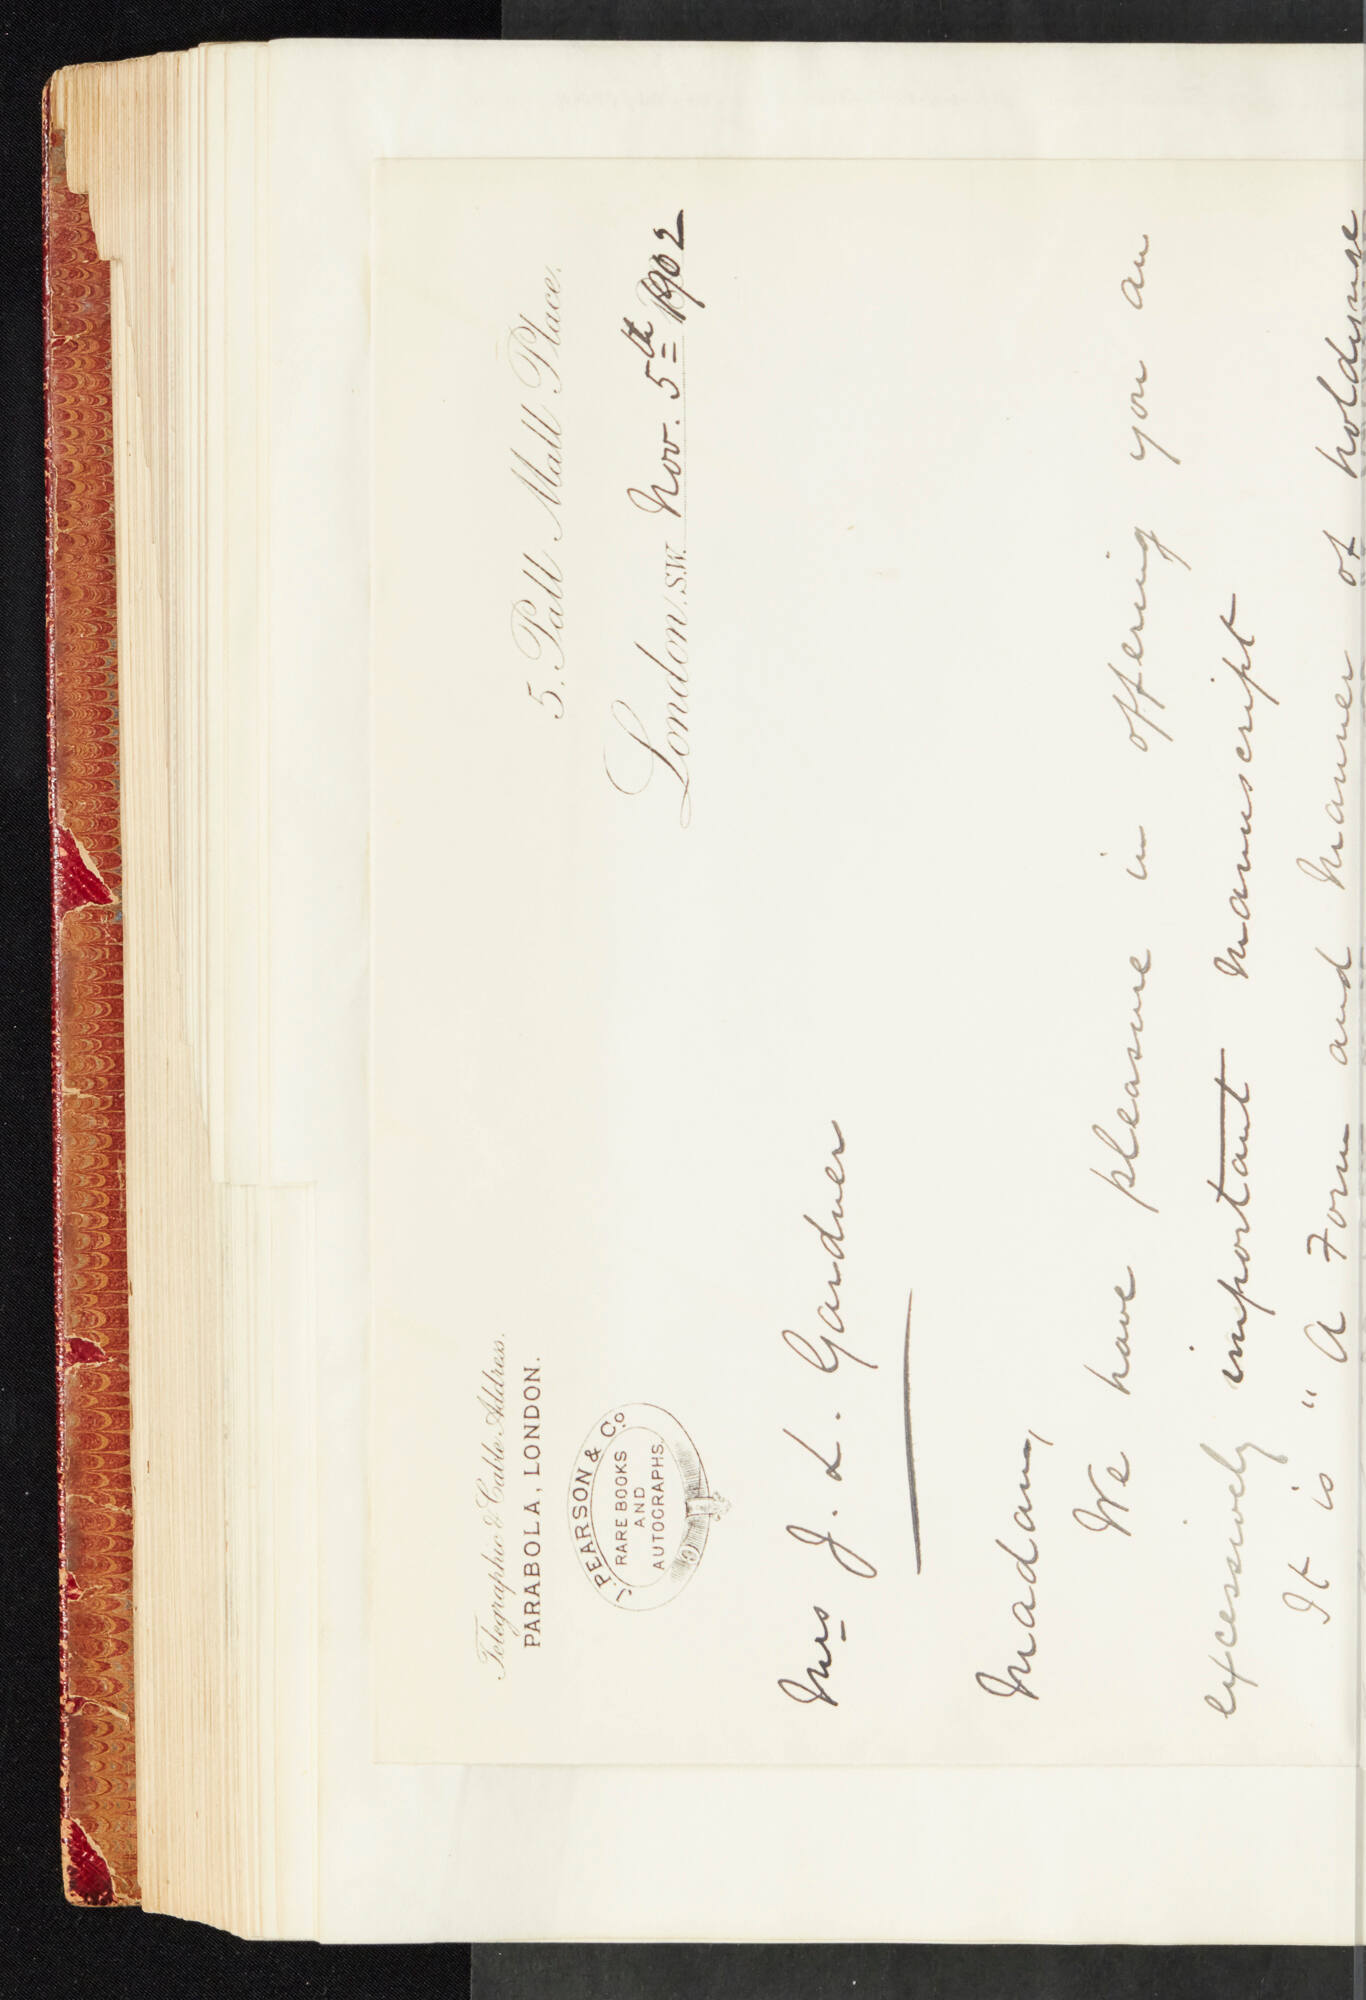 Telegraphic & Cable Address.
PARABOLA, LONDON.
5, Pall Mall Place,
J. PEARSON & Co
RARE BOOKS
AND
AUTOGRAPHS.
London, S.W. Nov. 5th 1902
Mrs J. L. Gardner
Madam,
We have pleasure in offering you an
excessively important manuscript
It is "A Form and Manner of holdynge